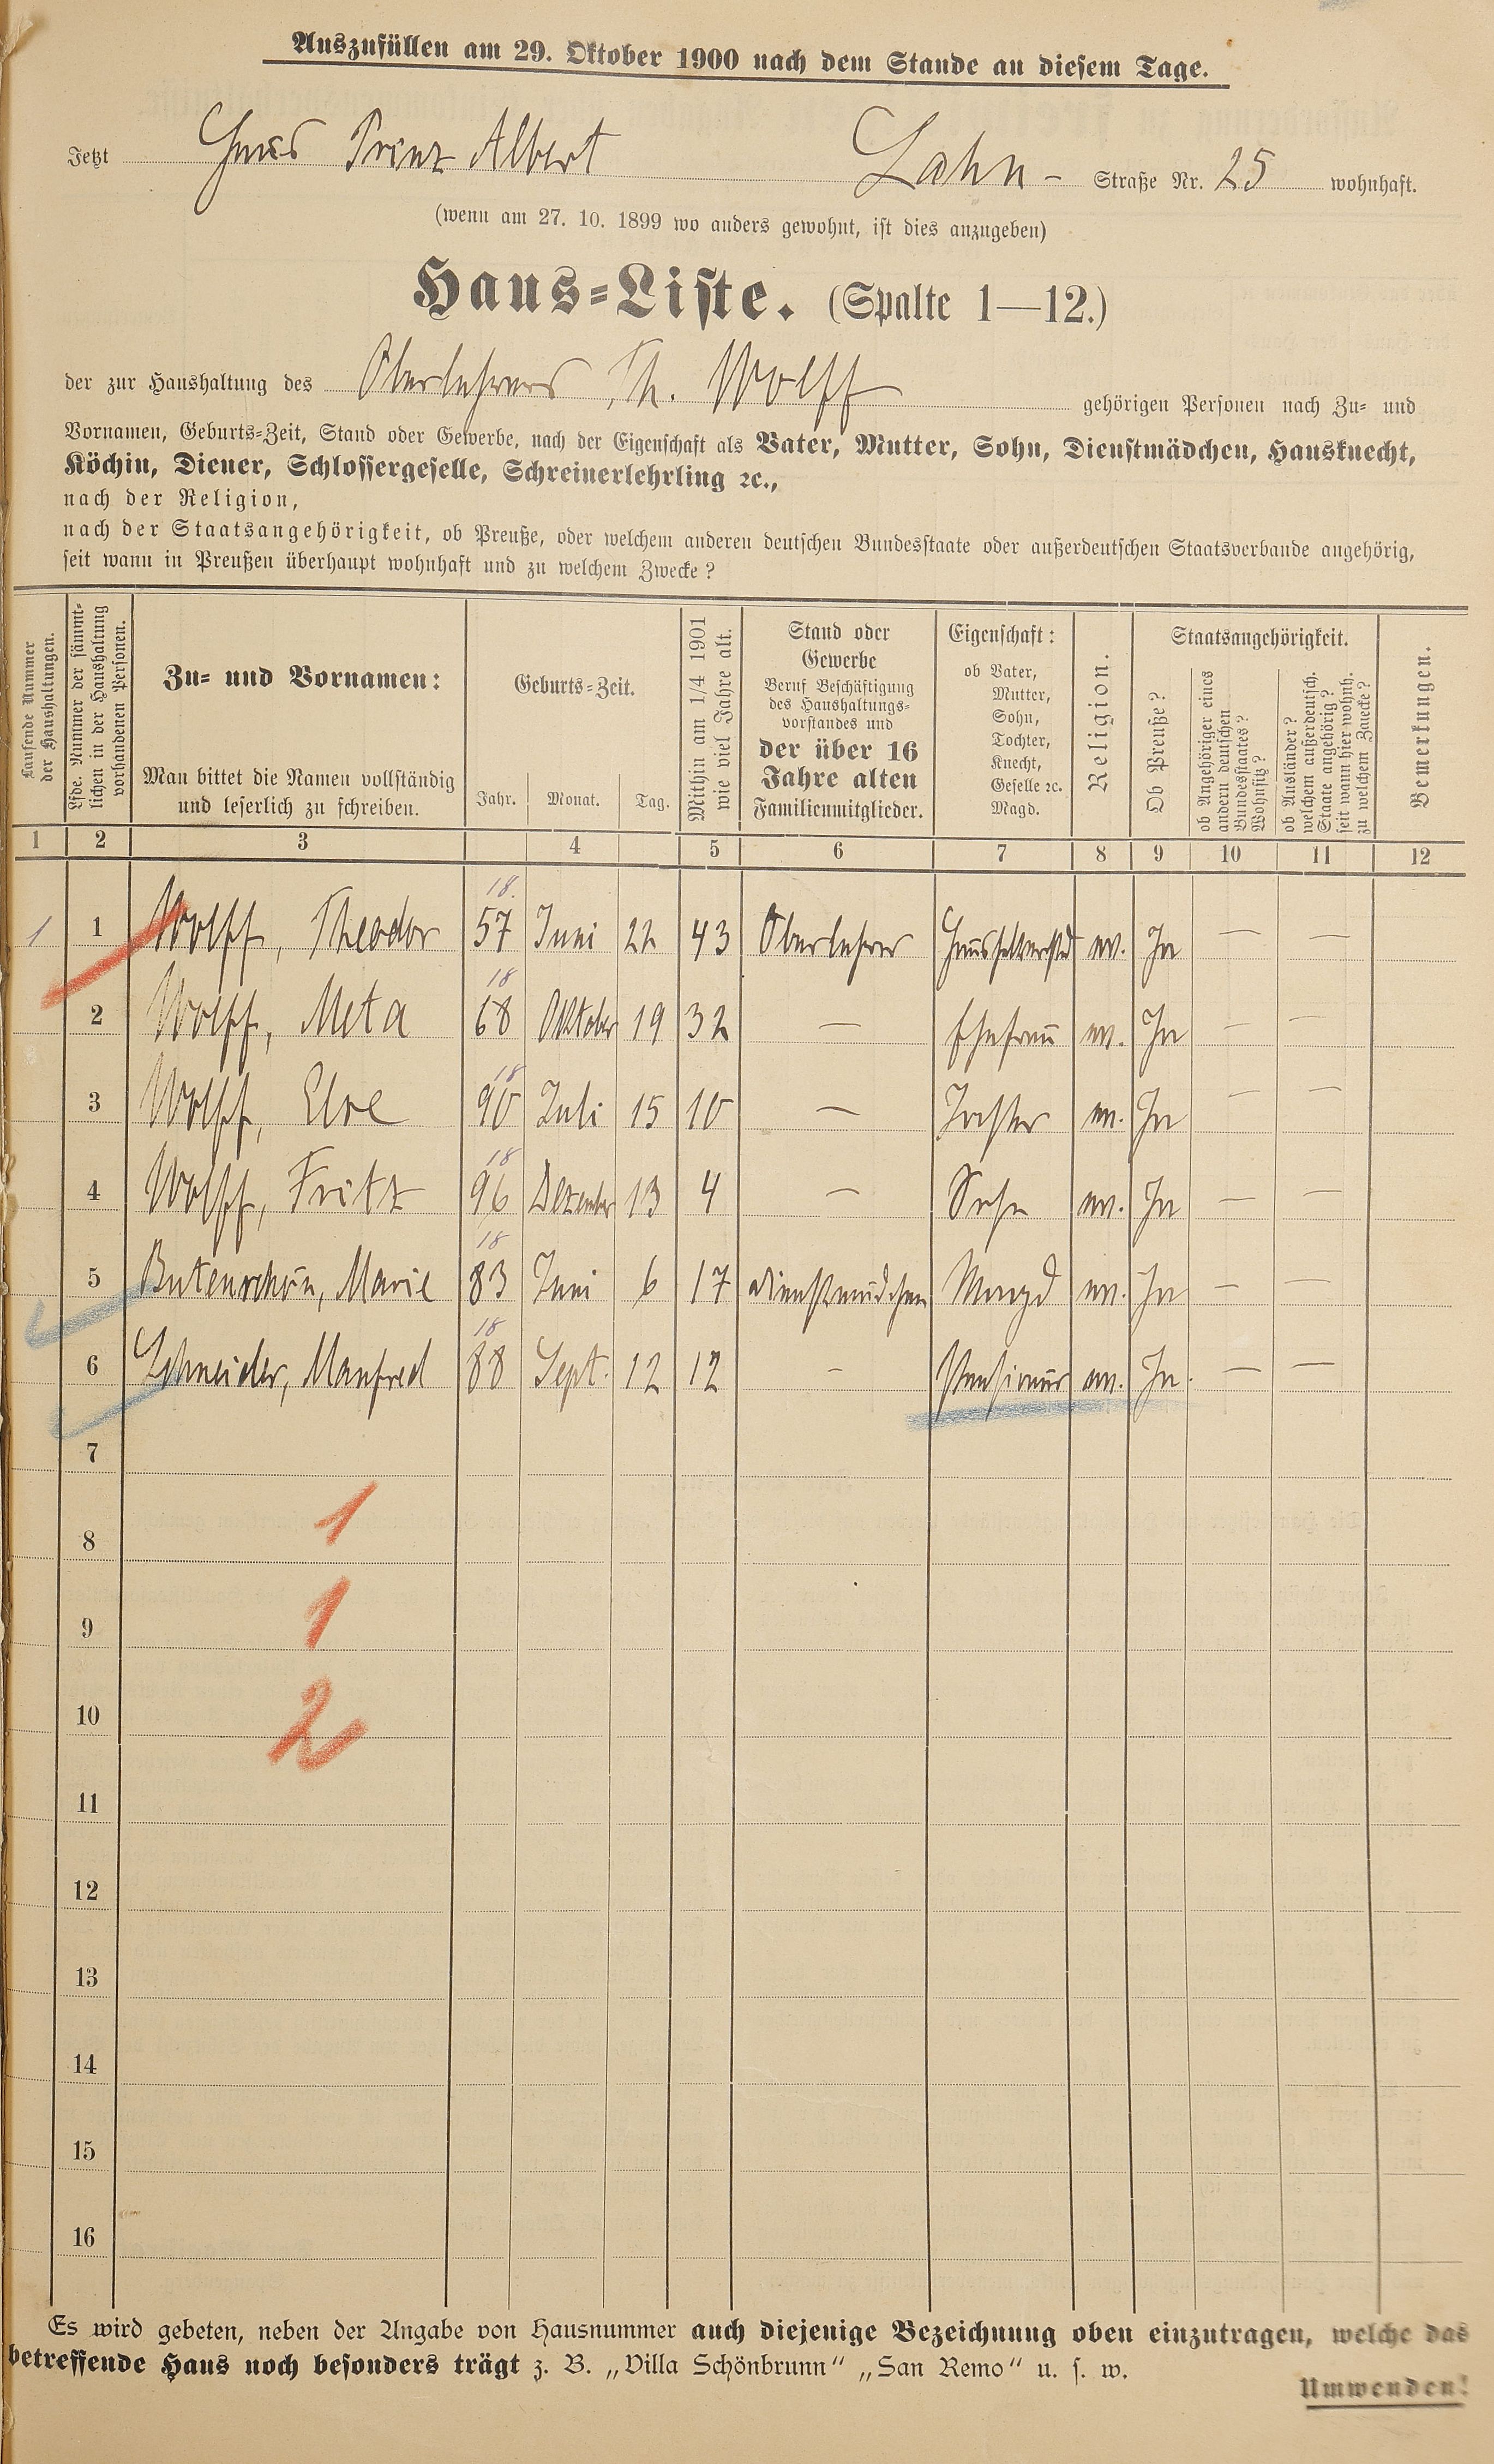 Auszufüllen am 29. Oktober 1900 nach dem Stande an diesem Tage.
Jetzt Haus Prinz Albert Lahn- Straße Nr. 25 wohnhaft.
(wenn am 27. 10. 1899 wo anders gewohnt, ist dies anzugeben)
Haus-Liste. (Spalte 1—12.)
der zur Haushaltung des Oberlehrers Th. Wolff gehörigen Personen nach Zu- und
Vornamen, Geburts-Zeit, Stand oder Gewerbe, nach der Eigenschaft als Vater, Mutter, Sohn, Dienstmädchen, Hausknecht,
Köchin, Diener, Schlossergeselle, Schreinerlehrling ꝛc.,
nach der Religion,
nach der Staatsangehörigkeit, ob Preuße, oder welchem anderen deutschen Bundesstaate oder außerdeutschen Staatsverbande angehörig,
seit wann in Preußen überhaupt wohnhaft und zu welchem Zwecke?
Laufende Nummer
der Haushaltungen.
Lfde. Nummer der sämmt-
lichen in der Haushaltung
vorhandenen Personen.
Zu- und Vornamen:
Man bittet die Namen vollständig
und leserlich zu schreiben.
Geburts-Zeit.
Jahr. Monat. Tag.
Mithin am 1/4 1901
wie viel Jahre alt.
Stand oder
Gewerbe
Beruf Beschäftigung
des Haushaltungs-
vorstandes und
der über 16
Jahre alten
Familienmitglieder.
Eigenschaft:
ob Vater,
Mutter,
Sohn,
Tochter,
Knecht,
Geselle ꝛc.
Magd.
Religion.
Staatsangehörigkeit.
Ob Preuße?
ob Angehöriger eines
andern deutschen
Bundesstaates?
Wohnsitz?
ob Ausländer?
welchem außerdeutsch.
Staate angehörig?
seit wann hier wohnh.
zu welchem Zwecke?
Bemerkungen.
1 2 3 4 5 6 7 8 9 10 11 12
1 1 Wolff, Theodor 18. 57 Juni 22 43 Oberlehrer ev. Ja — —
2 Wolff, Meta 18 68 Oktober 19 32 — Ehefrau ev. Ja — —
3 Wolff, Else 18 90 Juli 15 10 — Tochter ev. Ja — —
4 Wolff, Fritz 18 96 Dezember 13 4 — Sohn ev. Ja — —
5 Butenschön, Marie 18 83 Juni 6 17 Dienstmädchen Magd ev. Ja — —
6 Schneider, Manfred 18 88 Sept. 12 12 - Pensionär ev. Ja. — —
7
8 1
9 1
10 2
11
12
13
14
15
16
Es wird gebeten, neben der Angabe von Hausnummer auch diejenige Bezeichnung oben einzutragen, welche das
betreffende Haus noch besonders trägt z. B. „Villa Schönbrunn“ „San Remo“ u. s. w.
Umwenden!